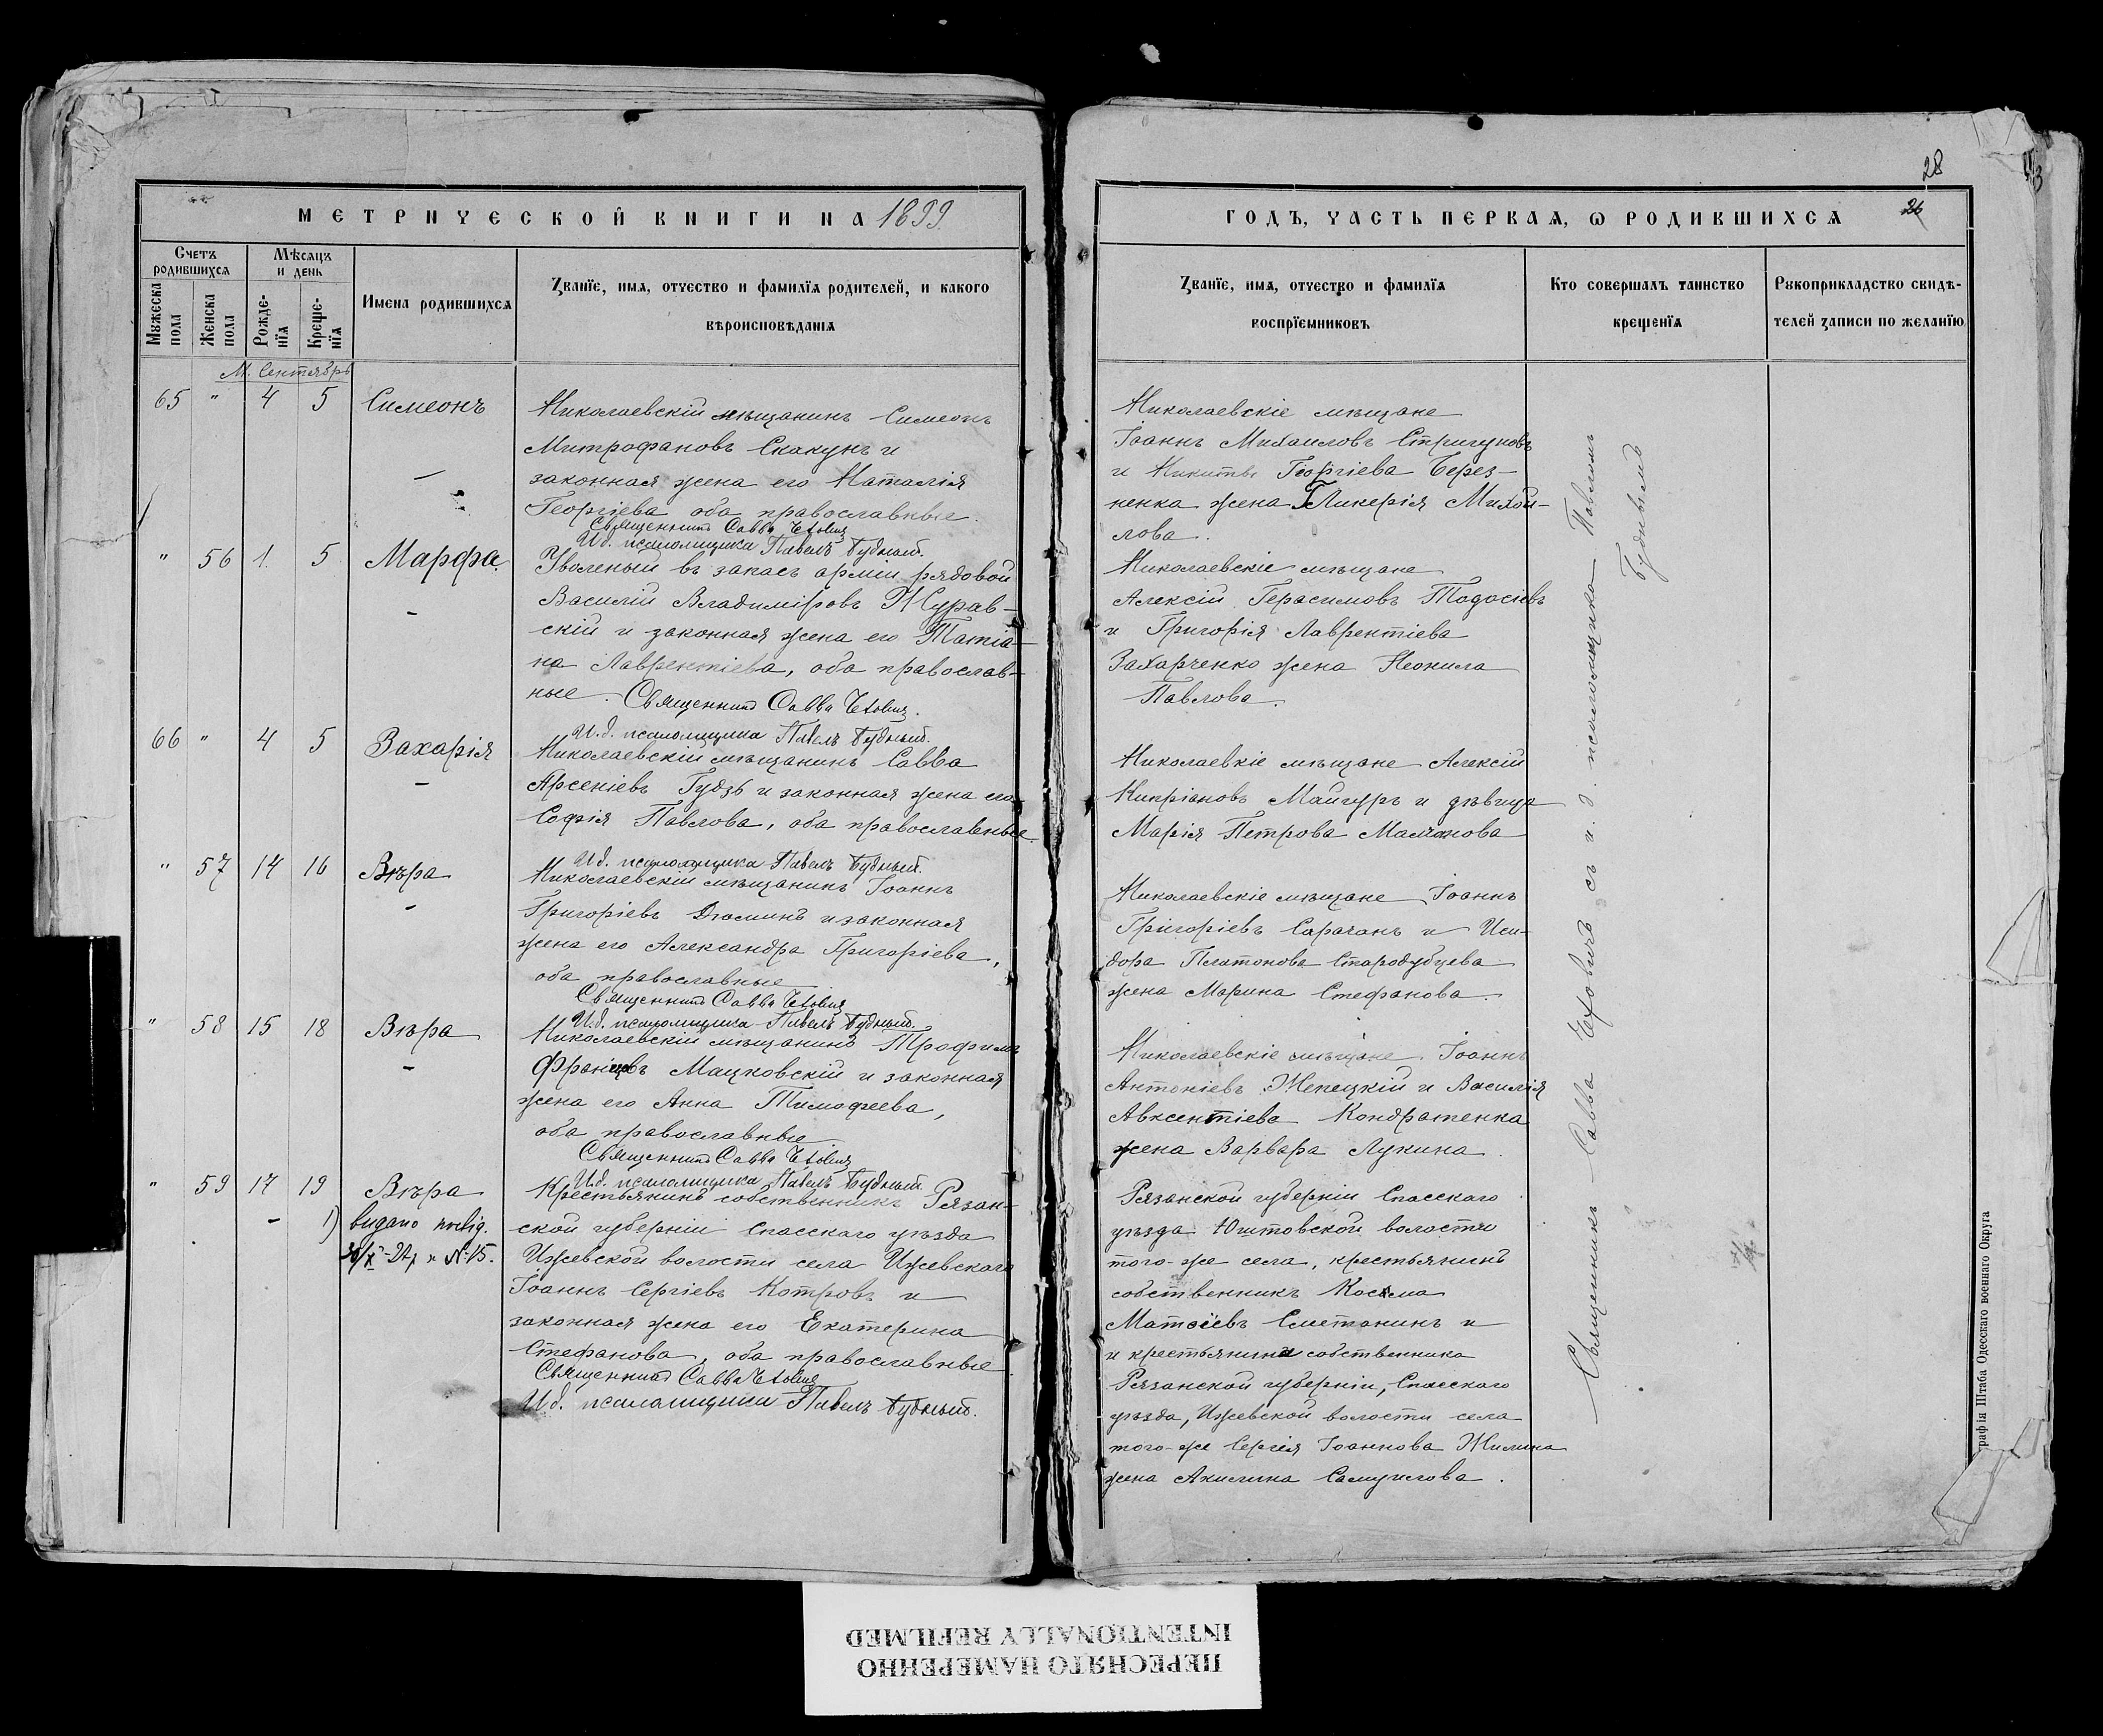 МЕТРИЧЕСКОЙ КНИГИ НА 1899
Счетъ родившихся
Мужеска пола
Женска пола
Мѣсяцъ и день
Рожденїя
Крещенїя
Имена родившихся
Званїе, имя, отчество и фамилїя родителей, и какого
вѣроисповѣданїя
М. Сентябрь
65 " 4 5 Симеонъ
Николаевскій мѣщанинъ Симеонъ
Митрофановъ Скакунъ и
законная жена его Наталія
Георгіева оба православные.
Священникъ Савва
И.д. псаломщика Павелъ Будный.
" 56 1. 5 Марфа
Уволеный въ запасъ арміи рядовой
Василій Владиміровъ Журав-
скій и законная жена его Татіа-
на Лаврентіева, оба православ-
ные. Священникъ Савва
И.д. псаломщика Павелъ Будный.
66 " 4 5 Захарія
Николаевскій мѣщанинъ Савва
Арсеніевъ Гудзь и законная жена его
Софія Павлова, оба православные
И.д. псаломщика Павелъ Будный.
" 57 14 16 Вѣра
Николаевскій мѣщанинъ Іоаннъ
Григоріевъ Дюминъ и законная
жена его Александра Григоріева,
оба православные
Священникъ Савва
И.д. псаломщика Павелъ Будный.
" 58 15 18 Вѣра
Николаевскій мѣщанинъ Трофимъ
Францовъ Мацковскій и законная
жена его Анна Тимофеева,
оба православные
Священникъ Савва
И.д. псаломщика Павелъ Будный.
" 59 17 19 Вѣра
1) видано
№ 15.
Крестьянинъ собственникъ Рязан-
ской губерніи Спасскаго уѣзда
Ижевской волости села Ижевскаго
Іоаннъ Сергіевъ Котровъ и
законная жена его Екатерина
Стефанова, оба православные
Священникъ Савва
И.д. псаломщика Павелъ Будный.
28
26
ГОДЪ, ЧАСТЬ ПЕРВАЯ, Ѡ РОДИВШИХСЯ
Званїе, имя, отчество и фамилїя
воспрїемниковъ
Кто совершалъ таинство
крещенїя
Рукоприкладство свидѣ-
телей записи по желанїю
Николаевскіе мѣщане
Іоаннъ Михаиловъ Стригуновъ
и Никиты Георгіева Берез-
ненка жена Гликерія Михаи-
лова.
Николаевскіе мѣщане
Алексій Герасимовъ Тодосіевъ
и Григорія Лаврентіева
Захарченко жена Неонила
Павлова.
Николаевкіе мѣщане Алексій
Кипріановъ Майгуръ и дѣвица
Марія Петрова
Николаевскіе мѣщане Іоаннъ
Григоріевъ Сарачанъ и Иси-
дора Платонова Стародубцева
жена Марина Стефанова.
Николаевскіе мѣщане Іоаннъ
Антоніевъ Жепецкій и Василія
Авксентіева Кондратенка
жена Варвара Лукина.
Рязанской губерніи Спасскаго
уѣзда волости
того-же села, крестьянинъ
собственникъ Косьма
Сметанинъ и
и крестьянина собственника
Рязанской губерніи, Спасскаго
уѣзда, Ижевской волости села
того-же Сергія Іоаннова Жилина
жена Акилина Самуилова.
Священникъ Савва съ и.д. псаломщика Павломъ
Буднымъ
графія Штаба Одесскаго военнаго Округа
ПЕРЕСНЯТО НАМЕРЕННО
INTENTIONALLY REFILMED